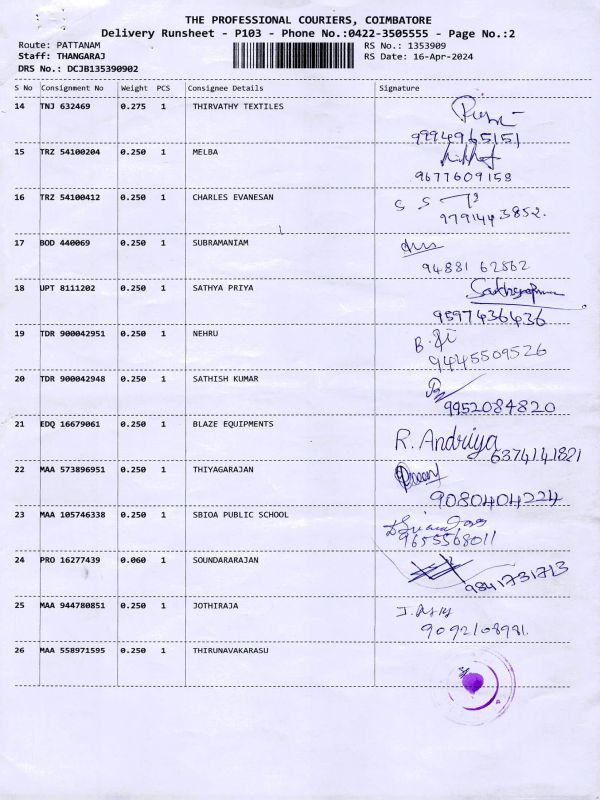 THE PROFESSIONAL COURIERS, COIMBATORE
Delivery Runsheet - P103 - Phone No.:0422-3505555 - Page No.:2
Route: PATTANAM RS No.: 1353909
Staff: THANGARAJ RS Date: 16-Apr-2024
DRS No.: DCJB135390902
S No Consignment No Weight PCS Consignee Details Signature
14 TNJ 632469 0.275 1 THIRVATHY TEXTILES
99949 65151
15 TRZ 54100204 0.250 1 MELBA
9677609158
16 TRZ 54100412 0.250 1 CHARLES EVANESAN
9791443852.
17 BOD 440069 0.250 1 SUBRAMANIAM
94881 62562
18 UPT 8111202 0.250 1 SATHYA PRIYA
9597436436
19 TDR 900042951 0.250 1 NEHRU
9445509526
20 TDR 900042948 0.250 1 SATHISH KUMAR
9952084820
21 EDQ 16679061 0.250 1 BLAZE EQUIPMENTS
R. Andriya 6374141821
22 MAA 573896951 0.250 1 THIYAGARAJAN
9080404224
23 MAA 105746338 0.250 1 SBIOA PUBLIC SCHOOL
9655568011
24 PRO 16277439 0.060 1 SOUNDARARAJAN
9841731713
25 MAA 944780851 0.250 1 JOTHIRAJA
9092108981.
26 MAA 558971595 0.250 1 THIRUNAVAKARASU